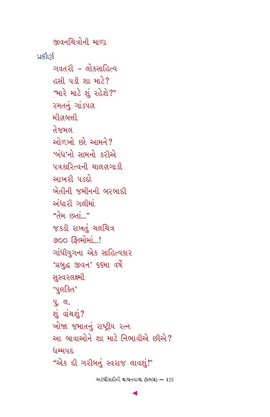 જીવનચિત્રોની માળા
પ્રકીર્ણ
ગવતરી – લોકસાહિત્ય
હસી પડી શા માટે?
"મારે માટે શું રહેશે?"
રમતનું ગાંડપણ
મીણબત્તી
તેજમલ
ઓળખો છો આમને?
'બંધ'નો સામનો કરીએ
પત્રકારિત્વની ચાલણગાડી
આખરી પડદો
ખેતીની જમીનની બરબાદી
અંધારી ગલીમાં
"તેમ છતાં..."
જકડી રાખતું ચલચિત્ર
૭૦૦ ફિલ્મોમાં...!
ગાંધીયુગના એક સાહિત્યકાર
'પ્રબુદ્ધ જીવન' ૬૬મા વર્ષે
સુસ્વરલક્ષ્મી
'પુલકિત'
પુ. લ.
શું વાંચશું?
ખોજા જમાતનું રાષ્ટ્રીય રત્ન
આ બાવાઓને શા માટે નિભાવીએ છીએ?
ધમ્મપદ
"એક દી ગરીબનું સ્વરાજ લાવશું!"
અરધી સદીની વાચનયાત્રા (ભાગ૪) — 125